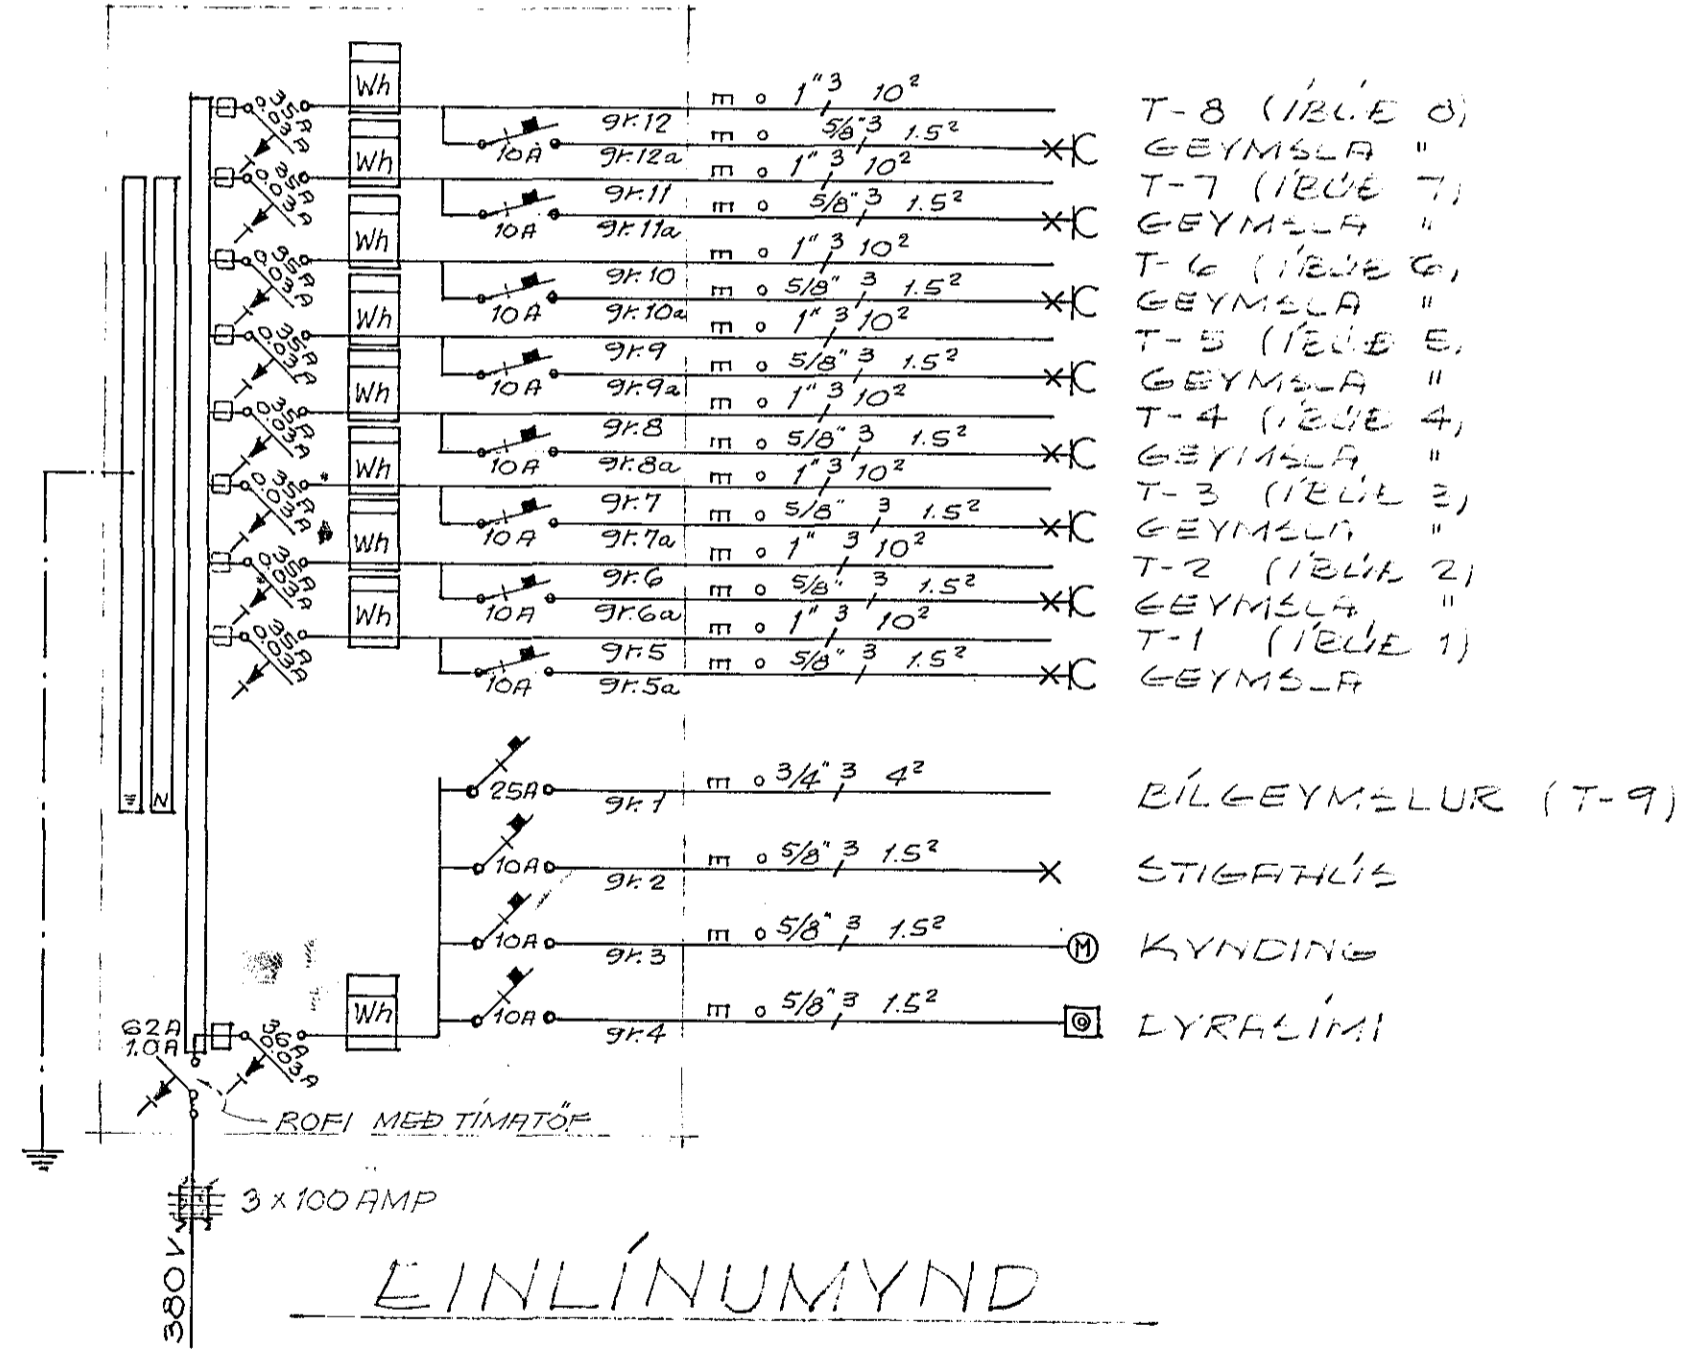 Wh 0.35A 0.03A m o 1" 3 10² T-8 (ÍBÚÐ 8)
gr.12
10A gr.12a m o 5/8" 3 1.5² GEYMSLA "
Wh 0.35A 0.03A m o 1" 3 10² T-7 (ÍBÚÐ 7)
gr.11
10A gr.11a m o 5/8" 3 1.5² GEYMSLA "
Wh 0.35A 0.03A m o 1" 3 10² T-6 (ÍBÚÐ 6)
gr.10
10A gr.10a m o 5/8" 3 1.5² GEYMSLA "
Wh 0.35A 0.03A m o 1" 3 10² T-5 (ÍBÚÐ 5)
gr.9
10A gr.9a m o 5/8" 3 1.5² GEYMSLA "
Wh 0.35A 0.03A m o 1" 3 10² T-4 (ÍBÚÐ 4)
gr.8
10A gr.8a m o 5/8" 3 1.5² GEYMSLA "
Wh 0.35A 0.03A m o 1" 3 10² T-3 (ÍBÚÐ 3)
gr.7
10A gr.7a m o 5/8" 3 1.5² GEYMSLA "
Wh 0.35A 0.03A m o 1" 3 10² T-2 (ÍBÚÐ 2)
gr.6
10A gr.6a m o 5/8" 3 1.5² GEYMSLA "
Wh 0.35A 0.03A m o 1" 3 10² T-1 (ÍBÚÐ 1)
gr.5
10A gr.5a m o 5/8" 3 1.5² GEYMSLA
N
25A gr.1 m o 3/4" 3 4² BÍLGEYMSLUR (T-9)
10A gr.2 m o 5/8" 3 1.5² STIGAHÚS
10A gr.3 m o 5/8" 3 1.5² M KYNDING
10A gr.4 m o 5/8" 3 1.5² DYRASÍMI
62A
1.0A
36A
0.03A
Wh
ROFI MEÐ TÍMATÖF
3 x 100 AMP
380 V
EINLÍNUMYND